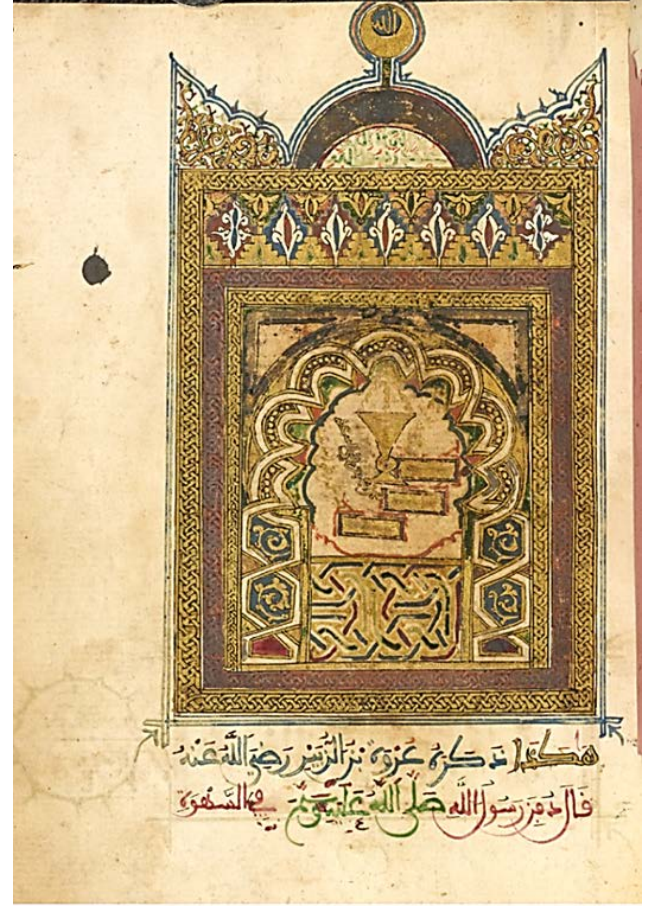 الله
هكذا ذكره عروة بن الزبير رضي الله عنه
قال دفن رسول الله صلى الله عليه وسلم في السهوة